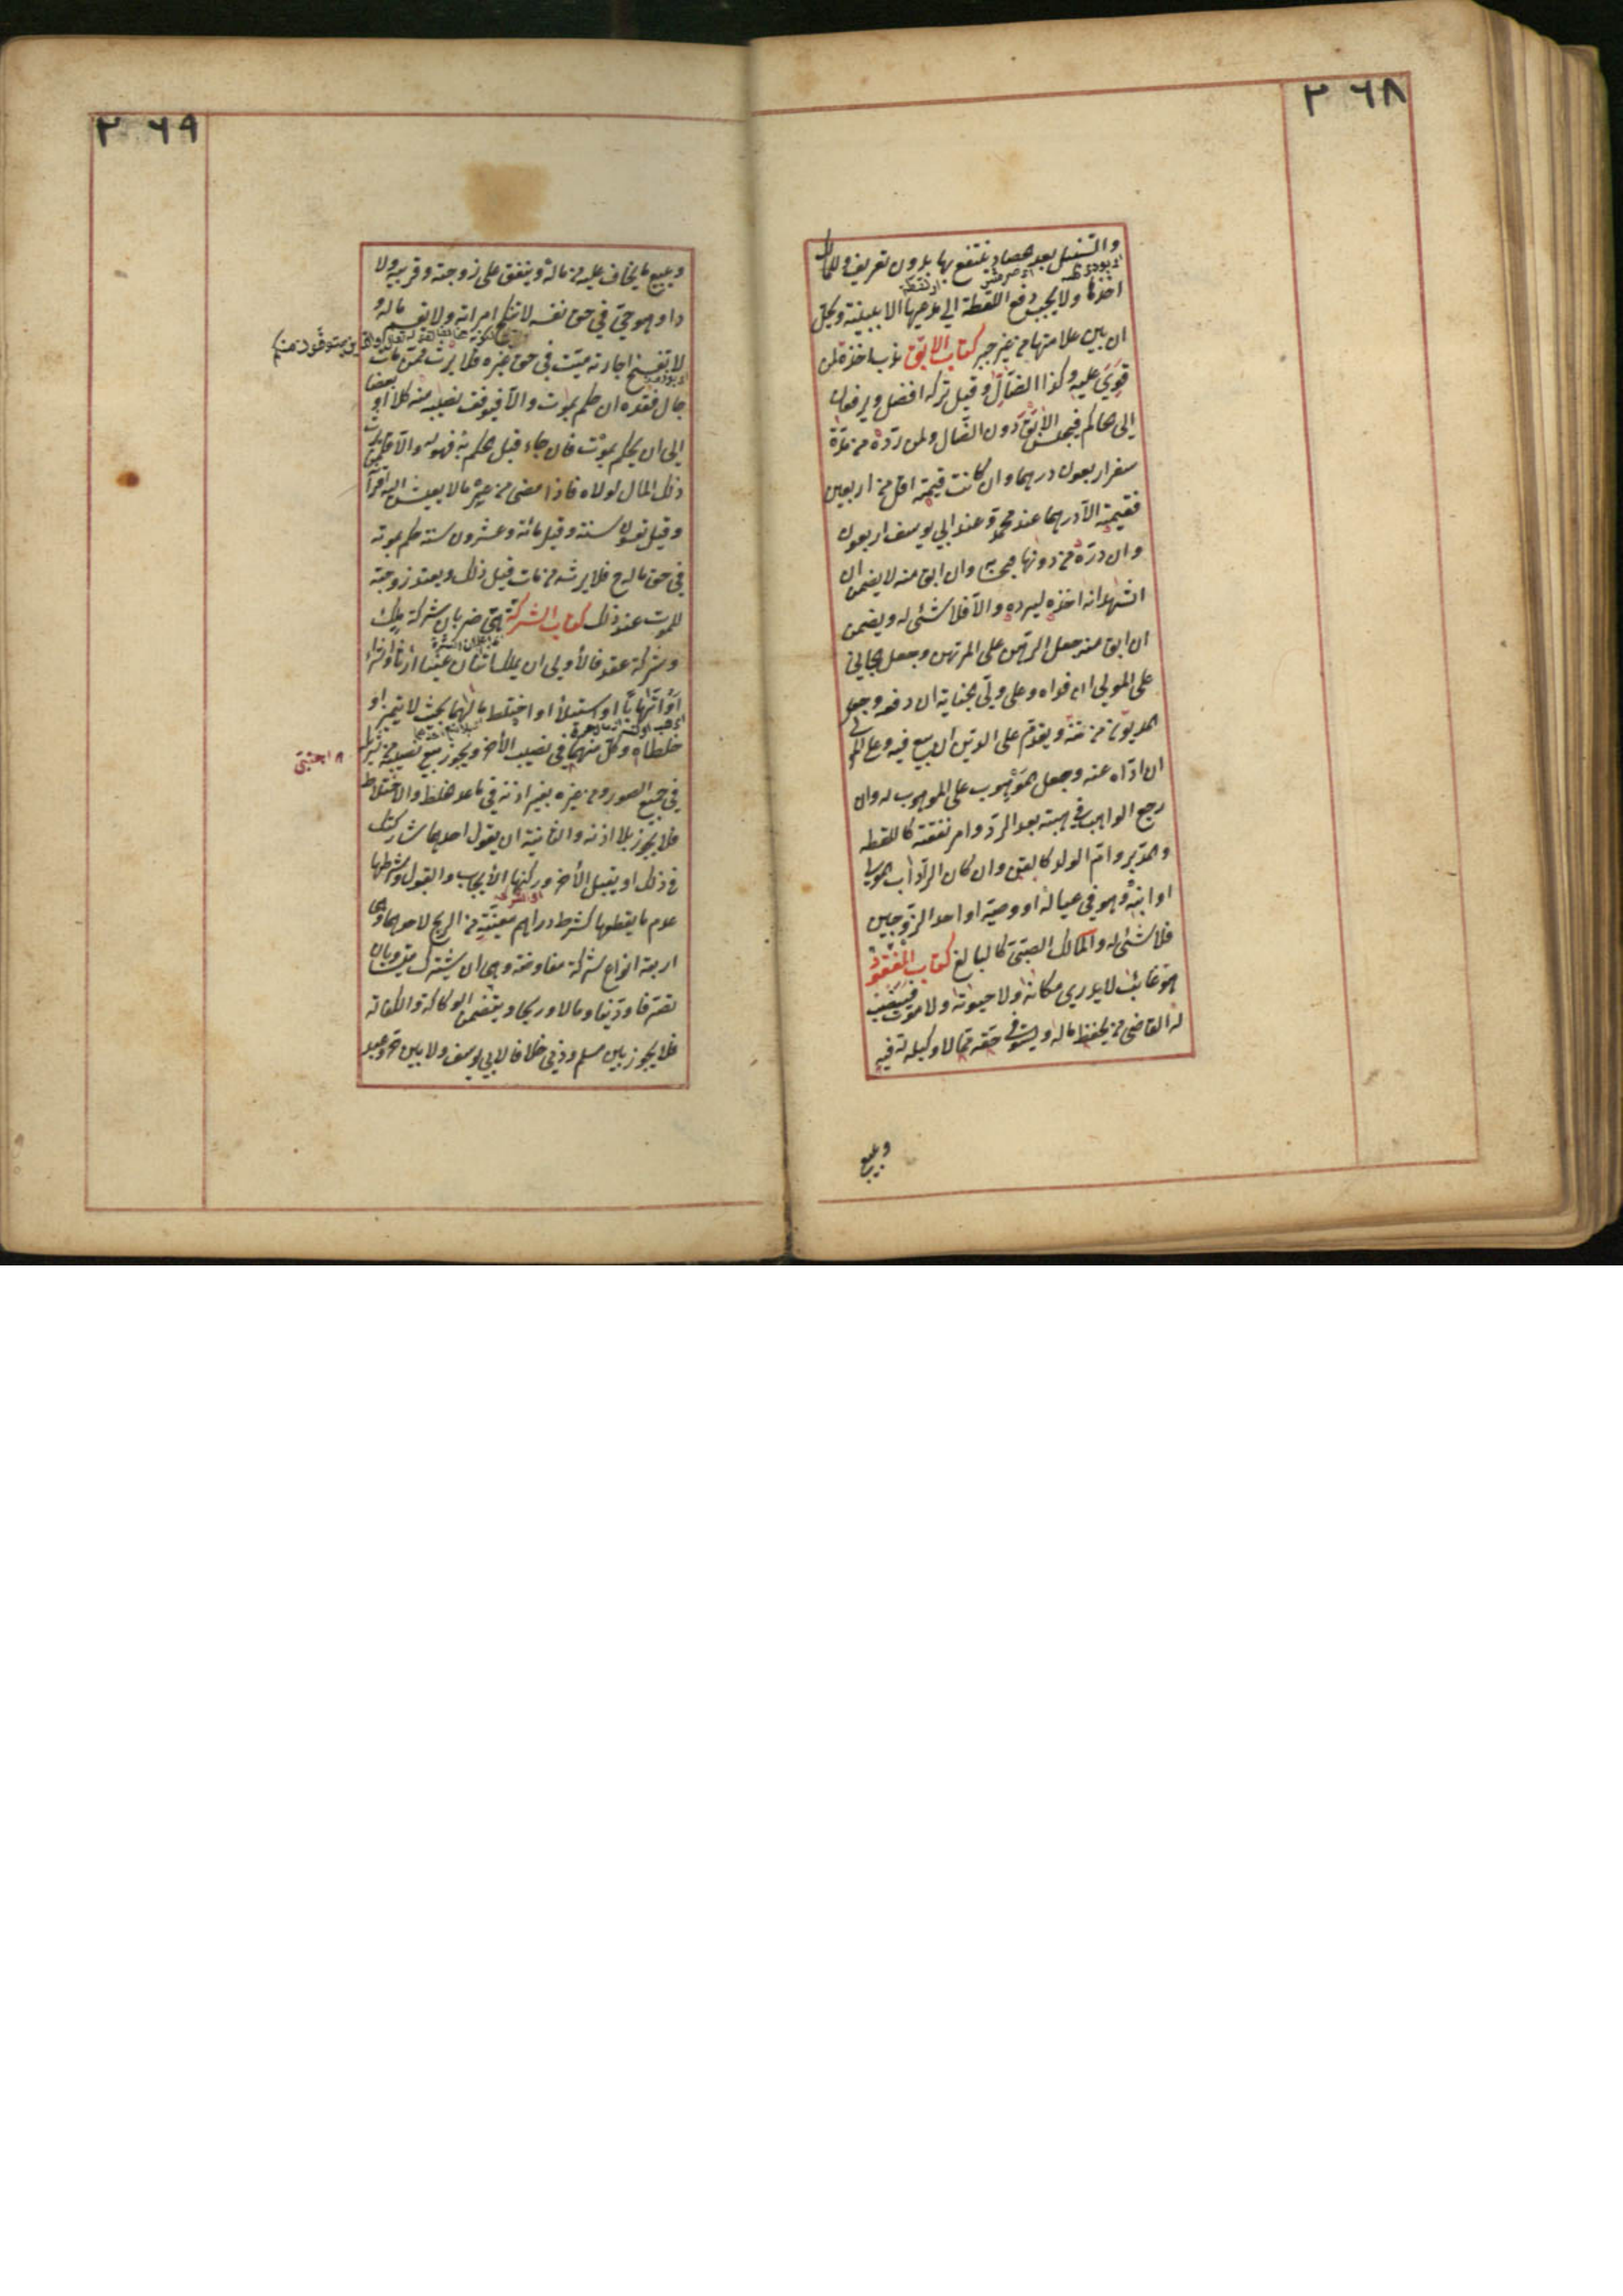 ٢٦٨
والسنبل بعد حصاد ينتفع بها بدون تعريف وللمالك
اخذها ولا يجب دفع اللقطة الى مدعيها الا ببينة ويحل
ان بين علامتها من غير جبر كتاب الابق ندب اخذه لمن
قوي عليه وكذا الضال وقيل تركه افضل ويرفعان
الى حاكم فيحبس الابق دون الضال ولمن رده من مدة
سفر اربعون درهما وان كانت قيمته اقل من اربعين
فقيمته الا درهما عند محمد وعند ابي يوسف اربعون
وان رده من دونها فبحسابه وان ابق منه لا يضمن ان
اشهد انه اخذه ليرده والا فلا شئ له ويضمن
ان ابق منه وجعل الرهن على المرتهن وجعل الجاني
على المولى ان فداه وعلى ولي الجناية ان دفعه وجعل
المديون من ثمنه ويقدم على الدين ان بيع فيه وعلى المولى
ان اداه عنه وجعل الموهوب على الموهوب له وان
رجع الواهب في هبته بعد الرد وامر نفقته كاللقطة
والمدبر وام الولد كالقن وان كان الراد اب المولى
او ابنه وهو في عياله او وصيه او احد الزوجين
فلا شئ له والمالك الصبي كالبالغ كتاب المفقود
هو غائب لا يدرى مكانه ولا حيوته ولا موته فينصب
له القاضي من يحفظ ماله ويستوفي حقه مما لا وكيل له فيه
ويبيع
٢٦٩
ويبيع ما يخاف عليه من ماله وينفق على زوجته وقريبه ولا
دا وهو حي في حق نفسه لا تنكح امراته ولا يقسم ماله
لا تفسخ اجارته ميت في حق غيره فلا يرث ممن مات
حال فقده ان حكم بموته والا فيوقف نصيبه منه كلا او بعضا
الى ان يحكم بموته فان جاء قبل حكم به فهو له والا فلمن يرث
ذلك المال لولاه فاذا مضى من عمره ما لا يعيش اليه اقرانه
وقيل تسعون سنة وقيل مائة وعشرون سنة حكم بموته
في حق ماله ح فلا يرثه من مات قبل ذلك وتعتد زوجته
للموت عند ذلك كتاب الشركة هي ضربان شركة ملك
وشركة عقد فالأولى ان يملك اثنان عينا ارثا او شراء
او اتهابا او استيلاء او اختلط مالهما بحيث لا يتميز او
خلطاه وكل منهما في نصيب الأخر ويجوز بيع نصيبه من شريكه
٨ اجنبي
في جميع الصور ومن غيره بغير اذنه في ما عدا خلط والاختلاط
فلا يجوز بلا اذنه والثانية ان يقول احدهما شاركتك
في ذلك او يقبل الأخر وركنها الأيجاب والقبول وشرطها
عدم ما يقطعها كشرط دراهم معينة من الربح لاحدهما وهي
اربعة انواع شركة مفاوضة وهي ان يشترك متساويان
تصرفا ودينا ومالا وربحا ويتضمن الوكالة والكفالة
فلا يجوز بين مسلم وذمي خلافا لابي يوسف ولا بين حر وعبد